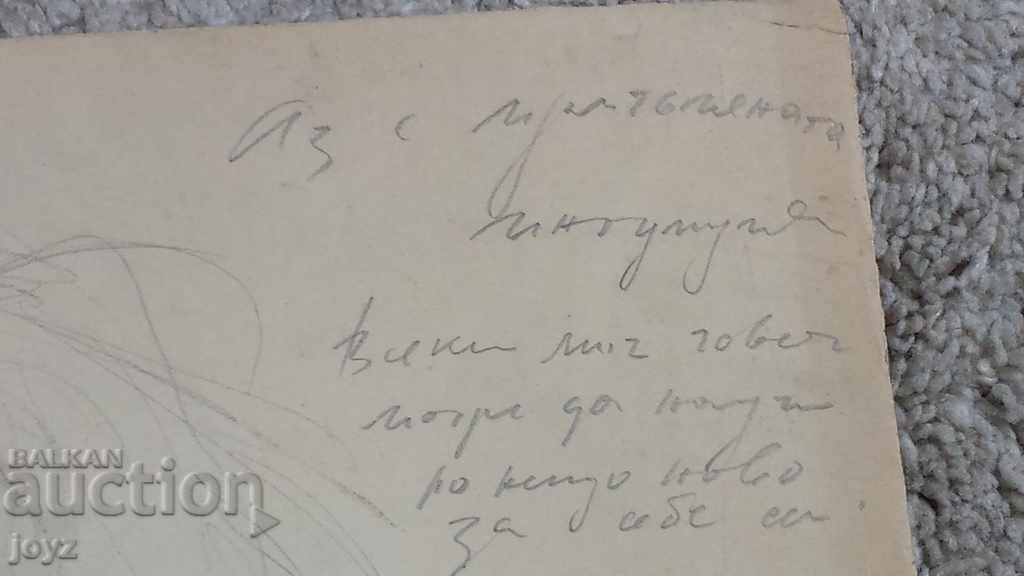 Аз с
Всеки миг човек
може да научи
по нещо ново
за себе си.
BALKAN
auction
joyz